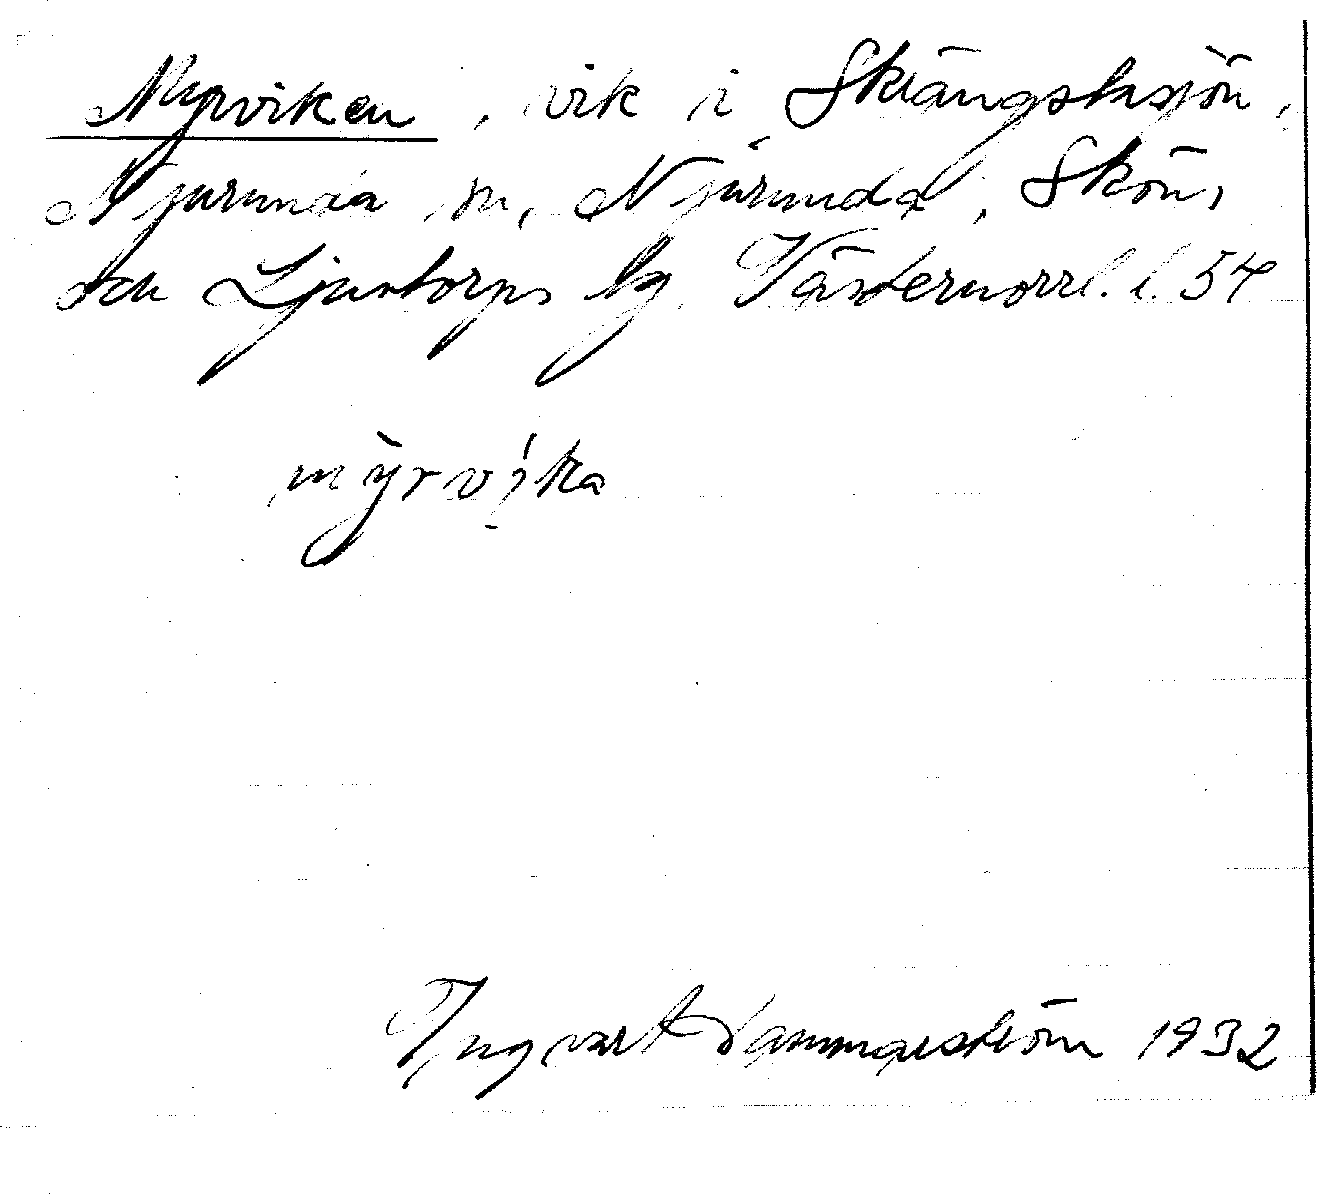 Myrviken, vik i Skrängstasjön,
Njurunda sn, Njurunda, Sköns
och Ljustorps tg. Västernorrl. l. 54
mỳrvịka
Ingvart Hammarström 1932